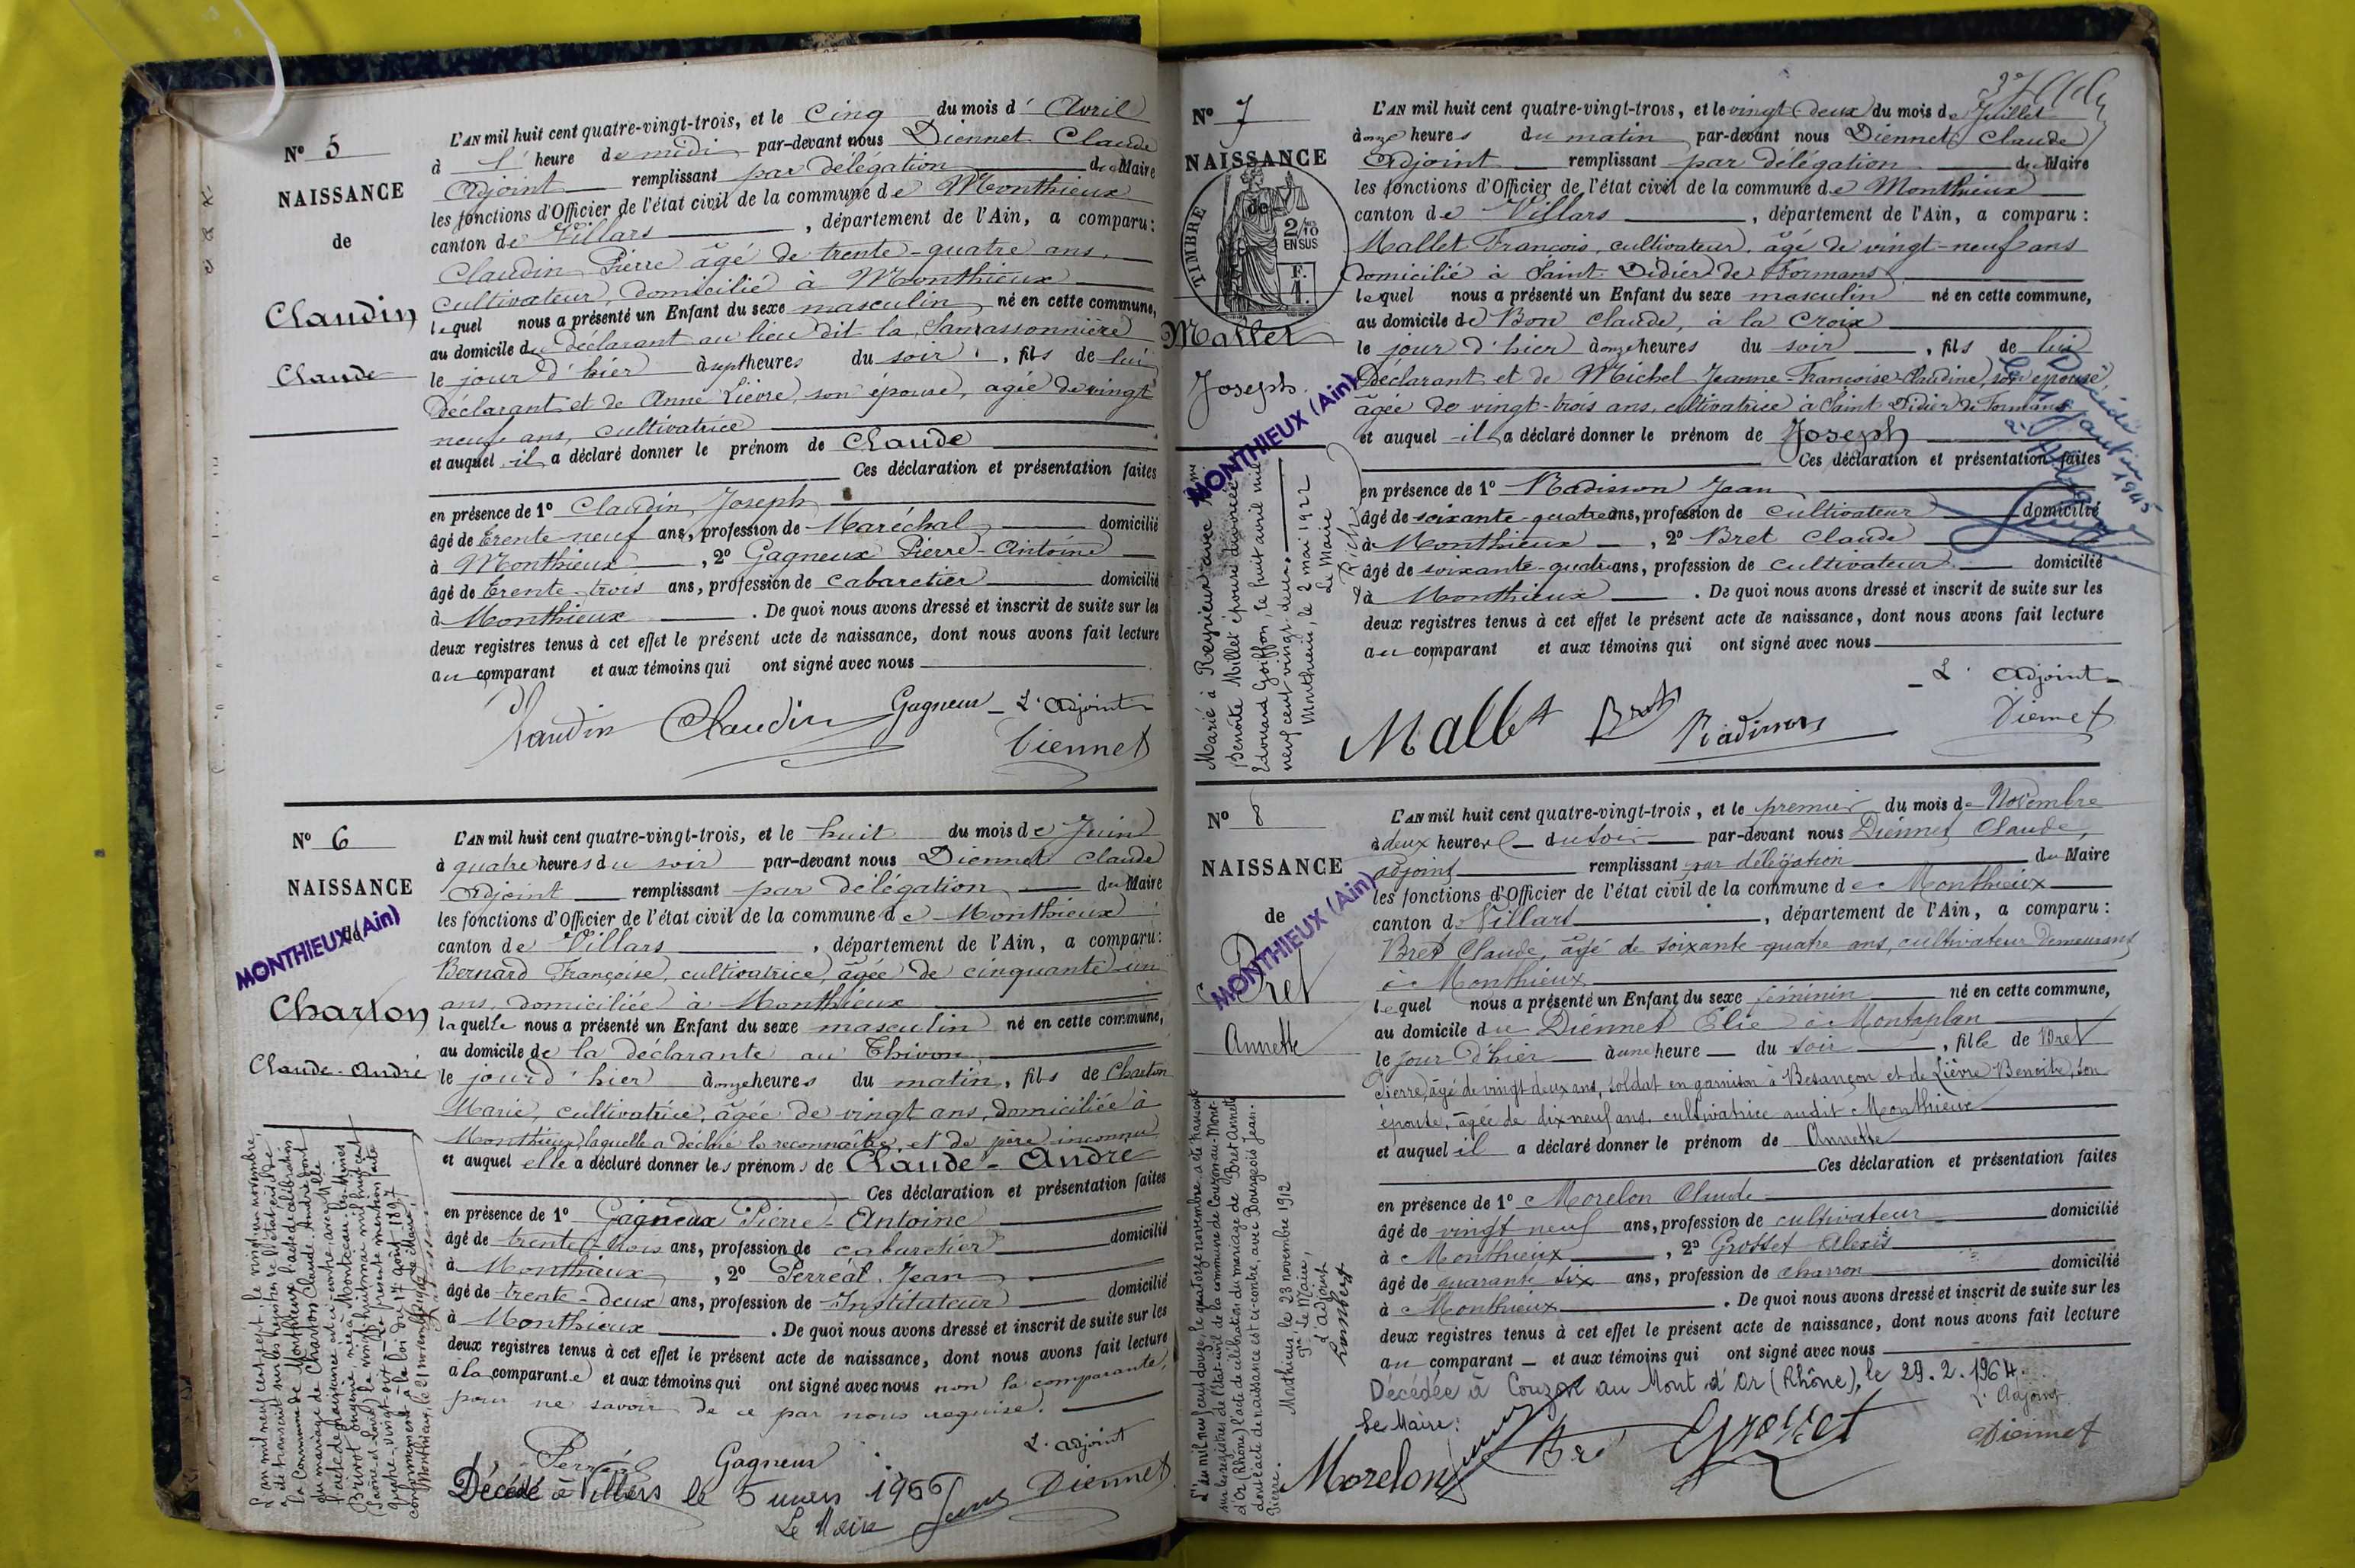 N° 5
NAISSANCE
de
Claudin
Claude
L'AN mil huit cent quatre-vingt-trois, et le cinq du mois d'Avril
à l' heure de midi par-devant nous Diennet Claude
Adjoint remplissant par délégation du Maire
les fonctions d'Officier de l'état civil de la commune de Monthieux
canton de Villars, département de l'Ain, a comparu:
Claudin Pierre âgé de trente-quatre ans,
cultivateur, domicilié à Monthieux
lequel nous a présenté un Enfant du sexe masculin né en cette commune,
au domicile du déclarant au lieu dit la
le jour d'hier à sept heures du soir, fils de lui
déclarant et de Anne Lièvre, son épouse, agée de vingt
neuf ans, cultivatrice
et auquel il a déclaré donner le prénom de Claude
Ces déclaration et présentation faites
en présence de 1° Claudin Joseph
âgé de trente neuf ans, profession de Maréchal domicilié
à Monthieux, 2° Gagneux Pierre-Antoine
âgé de trente-trois ans, profession de cabaretier domicilié
à Monthieux. De quoi nous avons dressé et inscrit de suite sur les
deux registres tenus à cet effet le présent acte de naissance, dont nous avons fait lecture
au comparant et aux témoins qui ont signé avec nous
Claudin Claudin Gagneux L'Adjoint
Diennet
N° 6
NAISSANCE
de
MONTHIEUX (Ain)
Charlon
Claude-André
L'AN mil huit cent quatre-vingt-trois, et le huit du mois de Juin
à quatre heures du soir par-devant nous Diennet Claude
Adjoint remplissant par délégation du Maire
les fonctions d'Officier de l'état civil de la commune de Monthieux
canton de Villars, département de l'Ain, a comparu:
Bernard Françoise, cultivatrice, âgée de cinquante-un
ans, domiciliée à Monthieux
laquelle nous a présenté un Enfant du sexe masculin né en cette commune,
au domicile de la déclarante au Thivon
le jour d'hier à onze heures du matin, fils de Charlon
Marie, cultivatrice, âgée de vingt ans, domiciliée à
Monthieux, laquelle a déclaré le reconnaître, et de père inconnu
et auquel elle a déclaré donner les prénoms de Claude-André
Ces déclaration et présentation faites
en présence de 1° Gagneux Pierre-Antoine
âgé de trente-trois ans, profession de cabaretier domicilié
à Monthieux, 2° Perréal Jean
âgé de trente-deux ans, profession de Instituteur domicilié
à Monthieux. De quoi nous avons dressé et inscrit de suite sur les
deux registres tenus à cet effet le présent acte de naissance, dont nous avons fait lecture
à la comparante et aux témoins qui ont signé avec nous non la comparante,
pour ne savoir de ce par nous requise.
Perréal Gagneux L'adjoint
Diennet
Décédé à Villars le 5 mars 1966
Le Maire
L'an mil neuf cent sept, le vingt un novembre,
a été transcrit sur les registres de l'état civil de
la commune de Monthieux l'acte de célébration
du mariage de Charlon Claude-André dont
l'acte de naissance est ci-contre, avec Mlle
née à Montceau-les-Mines
(Saône-et-Loire) le vingt huit mai mil huit cent
quatre-vingt-huit. La présente mention faite
conformément à la loi du 17 août 1897
Monthieux, le 21 novembre 1907
Le Maire,
N° 7
NAISSANCE
de
TIMBRE
2/10
EN SUS
F.
1.
Mallet
Joseph
MONTHIEUX (Ain)
L'AN mil huit cent quatre-vingt-trois, et le vingt-deux du mois de Juillet
à onze heures du matin par-devant nous Diennet Claude
Adjoint remplissant par délégation du Maire
les fonctions d'Officier de l'état civil de la commune de Monthieux
canton de Villars, département de l'Ain, a comparu:
Mallet François, cultivateur, âgé de vingt-neuf ans
domicilié à Saint-Didier de Formans
lequel nous a présenté un Enfant du sexe masculin né en cette commune,
au domicile de Bon Claude, à la Croix
le jour d'hier à onze heures du soir, fils de lui
déclarant et de Michel Jeanne-Françoise-Claudine, son épouse
âgée de vingt-trois ans, cultivatrice à Saint Didier de Formans
et auquel il a déclaré donner le prénom de Joseph
Ces déclaration et présentation faites
en présence de 1° Radisson Jean
âgé de soixante-quatre ans, profession de cultivateur domicilié
à Monthieux, 2° Bret Claude
âgé de soixante-quatre ans, profession de cultivateur domicilié
à Monthieux. De quoi nous avons dressé et inscrit de suite sur les
deux registres tenus à cet effet le présent acte de naissance, dont nous avons fait lecture
au comparant et aux témoins qui ont signé avec nous
L'Adjoint
Mallet Bret Radisson Diennet
Décédé
1945
Marié à Reyrieux avec
Benoîte Millet épouse divorcée
Edouard Goiffon, le huit avril mil
neuf cent vingt-deux.
Monthieux, le 2 mai 1922
Le Maire
N° 8
NAISSANCE
de
MONTHIEUX (Ain)
Bret
Annette
L'AN mil huit cent quatre-vingt-trois, et le premier du mois de Novembre
à deux heures du soir par-devant nous Diennet Claude,
adjoint remplissant par délégation du Maire
les fonctions d'Officier de l'état civil de la commune de Monthieux
canton de Villars, département de l'Ain, a comparu:
Bret Claude, âgé de soixante-quatre ans, cultivateur demeurant
à Monthieux
lequel nous a présenté un Enfant du sexe féminin né en cette commune,
au domicile du Diennet Élie à Montaplan
le jour d'hier à une heure du soir, fille de Bret
Pierre, âgé de vingt deux ans, soldat en garnison à Besançon et de Lièvre Benoite, son
épouse, âgée de dix neuf ans, cultivatrice audit Monthieux
et auquel il a déclaré donner le prénom de Annette
Ces déclaration et présentation faites
en présence de 1° Morelon Claude
âgé de vingt neuf ans, profession de cultivateur domicilié
à Monthieux, 2° Grosset Alexis
âgé de quarante six ans, profession de charron domicilié
à Monthieux. De quoi nous avons dressé et inscrit de suite sur les
deux registres tenus à cet effet le présent acte de naissance, dont nous avons fait lecture
au comparant et aux témoins qui ont signé avec nous
Décédée à Couzon au Mont d'Or (Rhône), le 29.2.1964.
Le Maire: L'Adjoint
Morelon Bré Grosset Diennet
L'an mil neuf cent douze, le quatorze novembre, a été transcrit
sur les registres de l'état-civil de la commune de Couzon-au-Mont-
d'Or (Rhône) l'acte de célébration du mariage de Bret Annette
dont l'acte de naissance est ci-contre, avec Bourgeois Jean-
Pierre.
Monthieux le 23 novembre 1912
Pr Le Maire,
L'adjoint